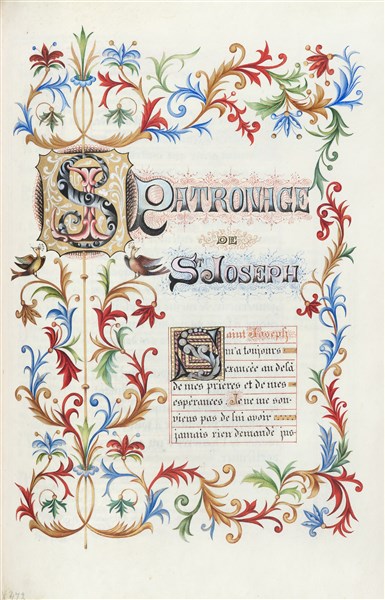 S PATRONAGE
DE
ST JOSEPH
Saint Joseph
m'a toujours
exaucée au delà
de mes prieres et de mes
espérances. Je ne me sou-
viens pas de lui avoir
jamais rien demandé jus-